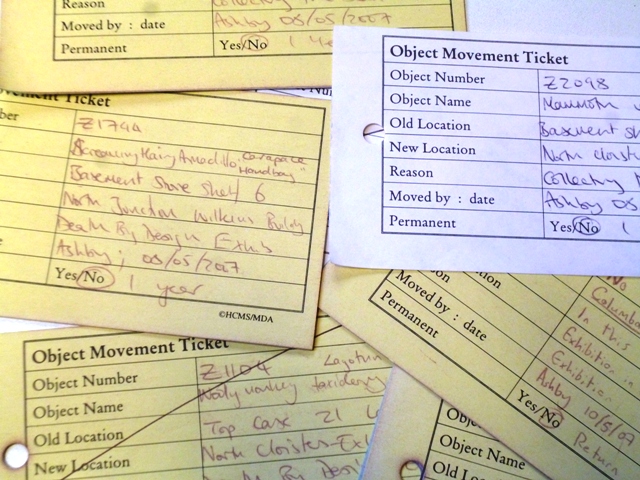 Reason
Moved by : date Ashby 08/05/2007
Permanent Yes/No 1 Ye
Object Movement Ticket
Object Number Z2098
Object Name Mammoth
Old Location Basement sh
New Location North cloist
Reason Collecting
Moved by : date Ashby 08
Permanent Yes/No 1
vement Ticket
ber Z174A
Screaming Hairy Armadillo. Carapace
"Handbag"
Basement Store Shelf 6
North Junction Wilkins Building
Death By Design Exhib
Ashby; 08/05/2007
Yes/No 1 year
©HCMS/MDA
Moved by : date
Permanent
No
Columb
In this
Exhibition
Exhibition
Ashby 10/5/07
Yes/No Return
Object Movement Ticket
Object Number Z1104
Object Name Woolly monkey taxidermy
Old Location Top Case 21
New Location North Cloisters-Ex
Object Name
Old Lo